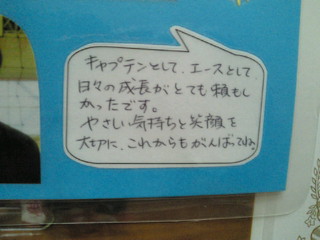 キャプテンとして、エースとして
日々の成長がとても頼もし
かったです。
やさしい気持ちと笑顔を
大切に、これからもがんばってね。